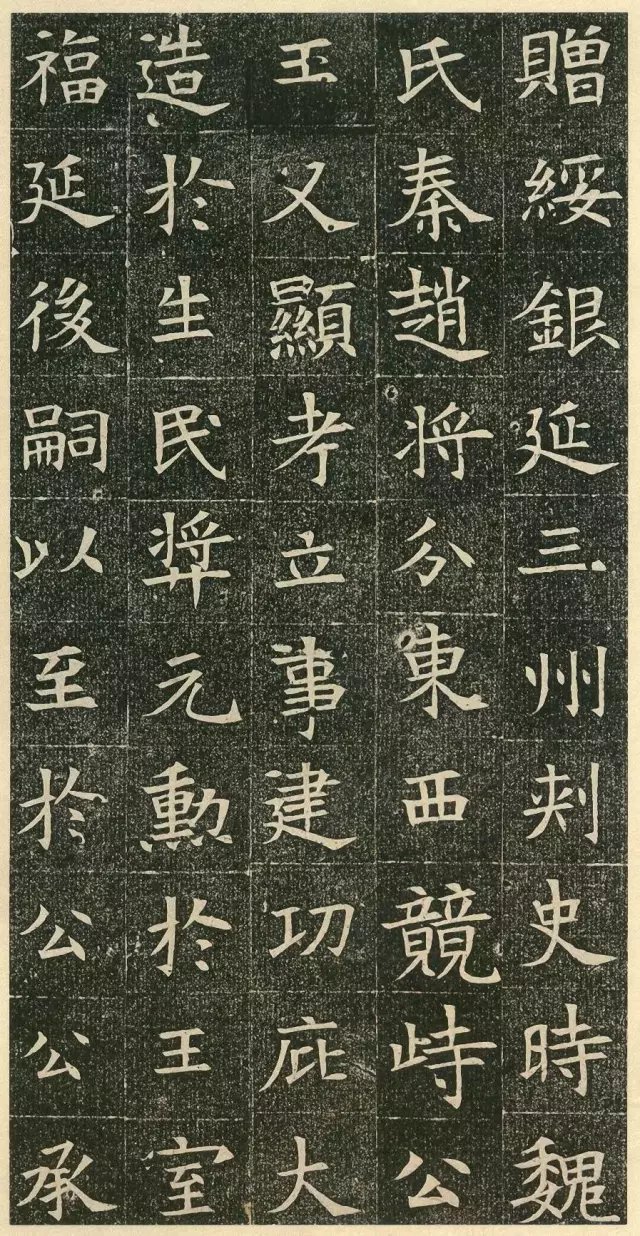 贈綏銀延三州刾史時魏
氏秦趙將分東西競峙公
王父顯考立事建功庇大
造於生民奨元勳於王室
福延後嗣以至於公公承